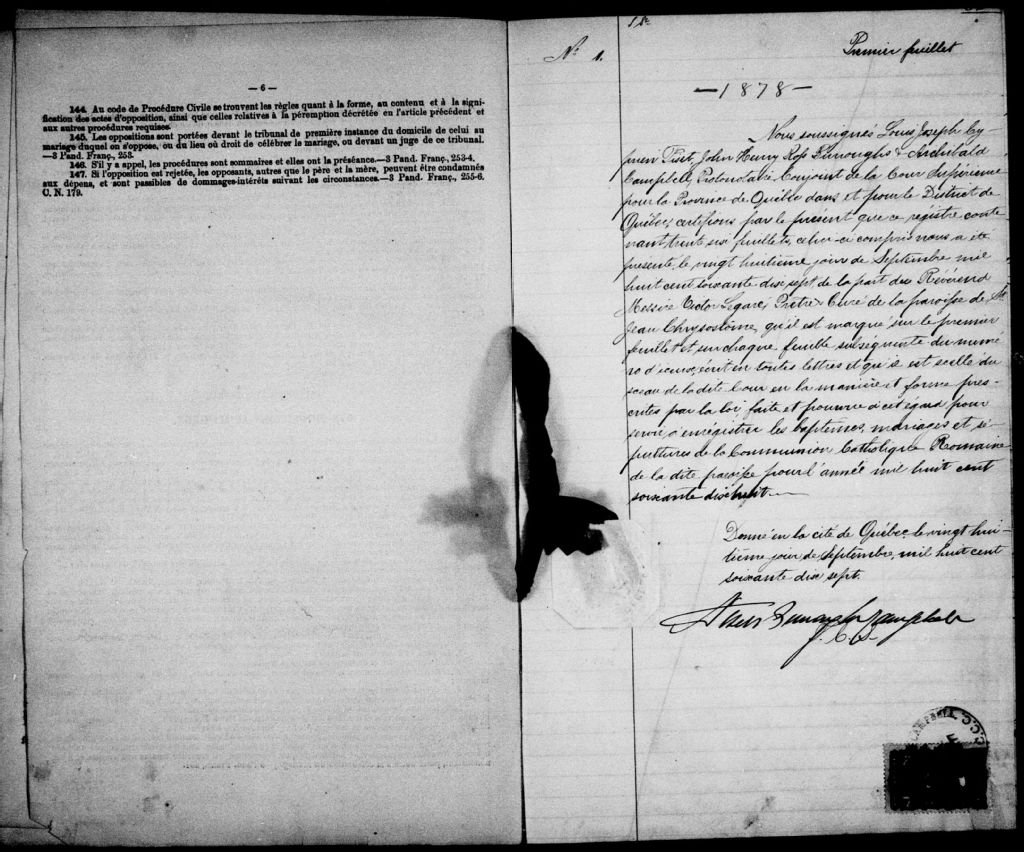 — 6 —
144. Au code de Procédure Civile se trouvent les règles quant à la forme, au contenu et à la signi-
fication des actes d'opposition, ainsi que celles relatives à la péremption décrétée en l'article précédent et
aux autres procédures requises.
145. Les oppositions sont portées devant le tribunal de première instance du domicile de celui au
mariage duquel on s'oppose, ou du lieu où droit de célébrer le mariage, ou devant un juge de ce tribunal.
—3 Pand. Franç., 253.
146. S'il y a appel, les procédures sont sommaires et elles ont la préséance.—3 Pand. Franç., 253-4.
147. Si l'opposition est rejetée, les opposants, autres que le père et la mère, peuvent être condamnés
aux dépens, et sont passibles de dommages-intérêts suivant les circonstances.—3 Pand. Franç., 255-6.
C. N. 179.
No 1.
Premier feuillet
—1878—
Nous soussignés Louis Joseph Cy
prien Fiset, John Henry Ross Burroughs & Archibald
Campbell, Protonotaire Conjoint de la Cour Supérieure
pour la Province de Québec dans et pour le District de
Québec, certifions par le présent que ce régistre conte
nant trente six feuillets, celui-ci compris nous a été
présenté, le vingt huitième jour de Septembre mil
huit cent soixante dix sept, de la part du Révérend
Messire Victor Legaré, Prêtre & Curé de la paroisse de St
Jean Chrysostôme, qu'il est marqué sur le premier
feuillet et sur chaque feuille subséquente du numé
ro d'iceux, écrit en toutes lettres et qu'il est scellé du
sceau de la dite Cour en la manière et forme pres-
crites par la loi, faite et pourvue à cet égard pour
servir à enrégistrer les baptêmes, mariages et sé-
pultures de la Communion Catholique Romaine
de la dite paroisse pour l'année mil huit cent
soixante dix huit.—
Donné en la cité de Québec, le vingt hui-
tième jour de Septembre, mil huit cent
soixante dix sept.
Fiset Burroughs Campbell
P. C. S.